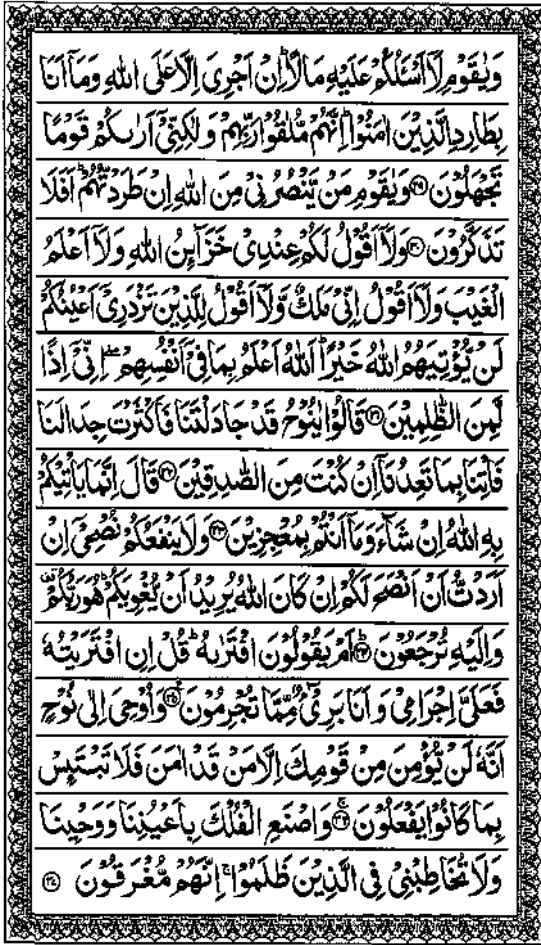 وَيٰقَوْمِ لَاۤ اَسْـَٔلُكُمْ عَلَيْهِ مَالًا ؕ اِنْ اَجْرِيَ اِلَّا عَلَى اللّٰهِ وَمَاۤ اَنَا
بِطَارِدِ الَّذِيْنَ اٰمَنُوْا ؕ اِنَّهُمْ مُّلٰقُوْا رَبِّهِمْ وَلٰكِنِّيْۤ اَرٰىكُمْ قَوْمًا
تَجْهَلُوْنَ ﴿۲۹﴾ وَيٰقَوْمِ مَنْ يَّنْصُرُنِيْ مِنَ اللّٰهِ اِنْ طَرَدْتُّهُمْ ؕ اَفَلَا
تَذَكَّرُوْنَ ﴿۳۰﴾ وَلَاۤ اَقُوْلُ لَكُمْ عِنْدِيْ خَزَآئِنُ اللّٰهِ وَلَاۤ اَعْلَمُ
الْغَيْبَ وَلَاۤ اَقُوْلُ اِنِّيْ مَلَكٌ وَّلَاۤ اَقُوْلُ لِلَّذِيْنَ تَزْدَرِيْۤ اَعْيُنُكُمْ
لَنْ يُّؤْتِيَهُمُ اللّٰهُ خَيْرًا ؕ اَللّٰهُ اَعْلَمُ بِمَا فِيْۤ اَنْفُسِهِمْ ۖۚ اِنِّيْۤ اِذًا
لَّمِنَ الظّٰلِمِيْنَ ﴿۳۱﴾ قَالُوْا يٰنُوْحُ قَدْ جَادَلْتَنَا فَاَكْثَرْتَ جِدَالَنَا
فَاْتِنَا بِمَا تَعِدُنَاۤ اِنْ كُنْتَ مِنَ الصّٰدِقِيْنَ ﴿۳۲﴾ قَالَ اِنَّمَا يَاْتِيْكُمْ
بِهِ اللّٰهُ اِنْ شَآءَ وَمَاۤ اَنْتُمْ بِمُعْجِزِيْنَ ﴿۳۳﴾ وَلَا يَنْفَعُكُمْ نُصْحِيْۤ اِنْ
اَرَدْتُّ اَنْ اَنْصَحَ لَكُمْ اِنْ كَانَ اللّٰهُ يُرِيْدُ اَنْ يُّغْوِيَكُمْ ؕ هُوَ رَبُّكُمْ ۫
وَاِلَيْهِ تُرْجَعُوْنَ ﴿۳۴﴾ اَمْ يَقُوْلُوْنَ افْتَرٰىهُ ؕ قُلْ اِنِ افْتَرَيْتُهٗ
فَعَلَيَّ اِجْرَامِيْ وَاَنَا بَرِيْٓءٌ مِّمَّا تُجْرِمُوْنَ ﴿۳۵﴾ وَاُوْحِيَ اِلٰى نُوْحٍ
اَنَّهٗ لَنْ يُّؤْمِنَ مِنْ قَوْمِكَ اِلَّا مَنْ قَدْ اٰمَنَ فَلَا تَبْتَىِٕسْ
بِمَا كَانُوْا يَفْعَلُوْنَ ﴿۳۶﴾ وَاصْنَعِ الْفُلْكَ بِاَعْيُنِنَا وَوَحْيِنَا
وَلَا تُخَاطِبْنِيْ فِي الَّذِيْنَ ظَلَمُوْا ۚ اِنَّهُمْ مُّغْرَقُوْنَ ﴿۳۷﴾